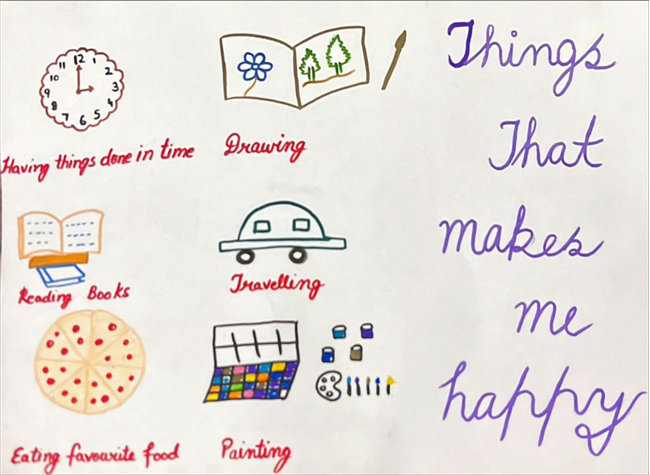 Things
That
makes
me
happy
12
1
2
3
4
5
6
7
8
9
10
11
Having things done in time
Drawing
Reading Books
Travelling
Eating favourite food
Painting